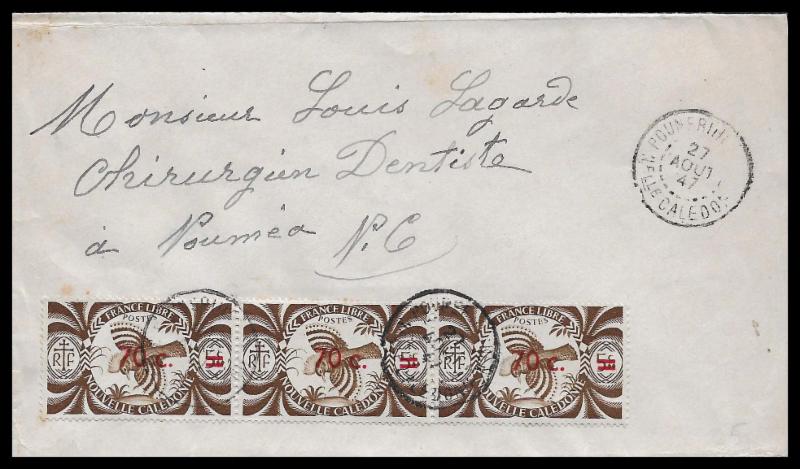 Monsieur Louis Lagarde
Chirurgien Dentiste
à Nouméa N.C
POUNERIHOUEN
27
AOUT
47
Nelle CALEDONIE
FRANCE LIBRE
POSTES
RF
70 c.
5c
NOUVELLE CALÉDONIE
FRANCE LIBRE
POSTES
RF
70 c.
5c
NOUVELLE CALÉDONIE
FRANCE LIBRE
POSTES
RF
70 c.
5c
NOUVELLE CALÉDONIE